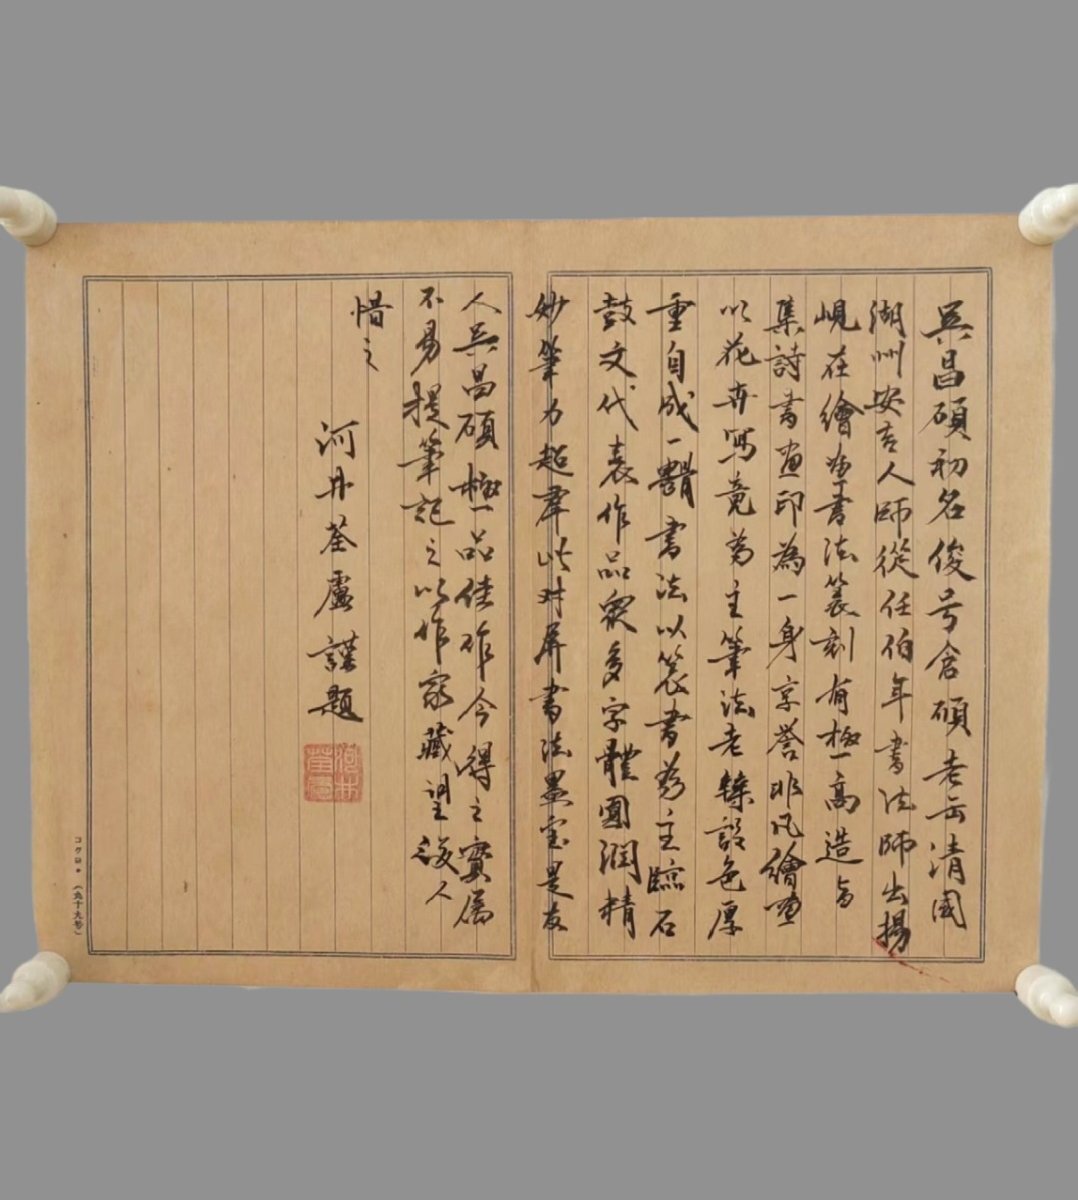 吳昌碩初名俊号倉碩老缶清國
湖州安吉人師從任伯年書法師出揚
峴在繪畫書法篆刻有極高造旨
集詩書畫印為一身享誉非凡繪畫
以花卉寫竟為主筆法老辣設色厚
重自成一體書法以篆書為主臨石
鼓文代表作品眾多字體圓潤精
妙筆力超群此对屏書法墨宝是友
人吳昌碩極品佳作今得之實属
不易提筆記之以作家藏望後人
惜之
河井荃廬謹題
コクヨ（九十九号）